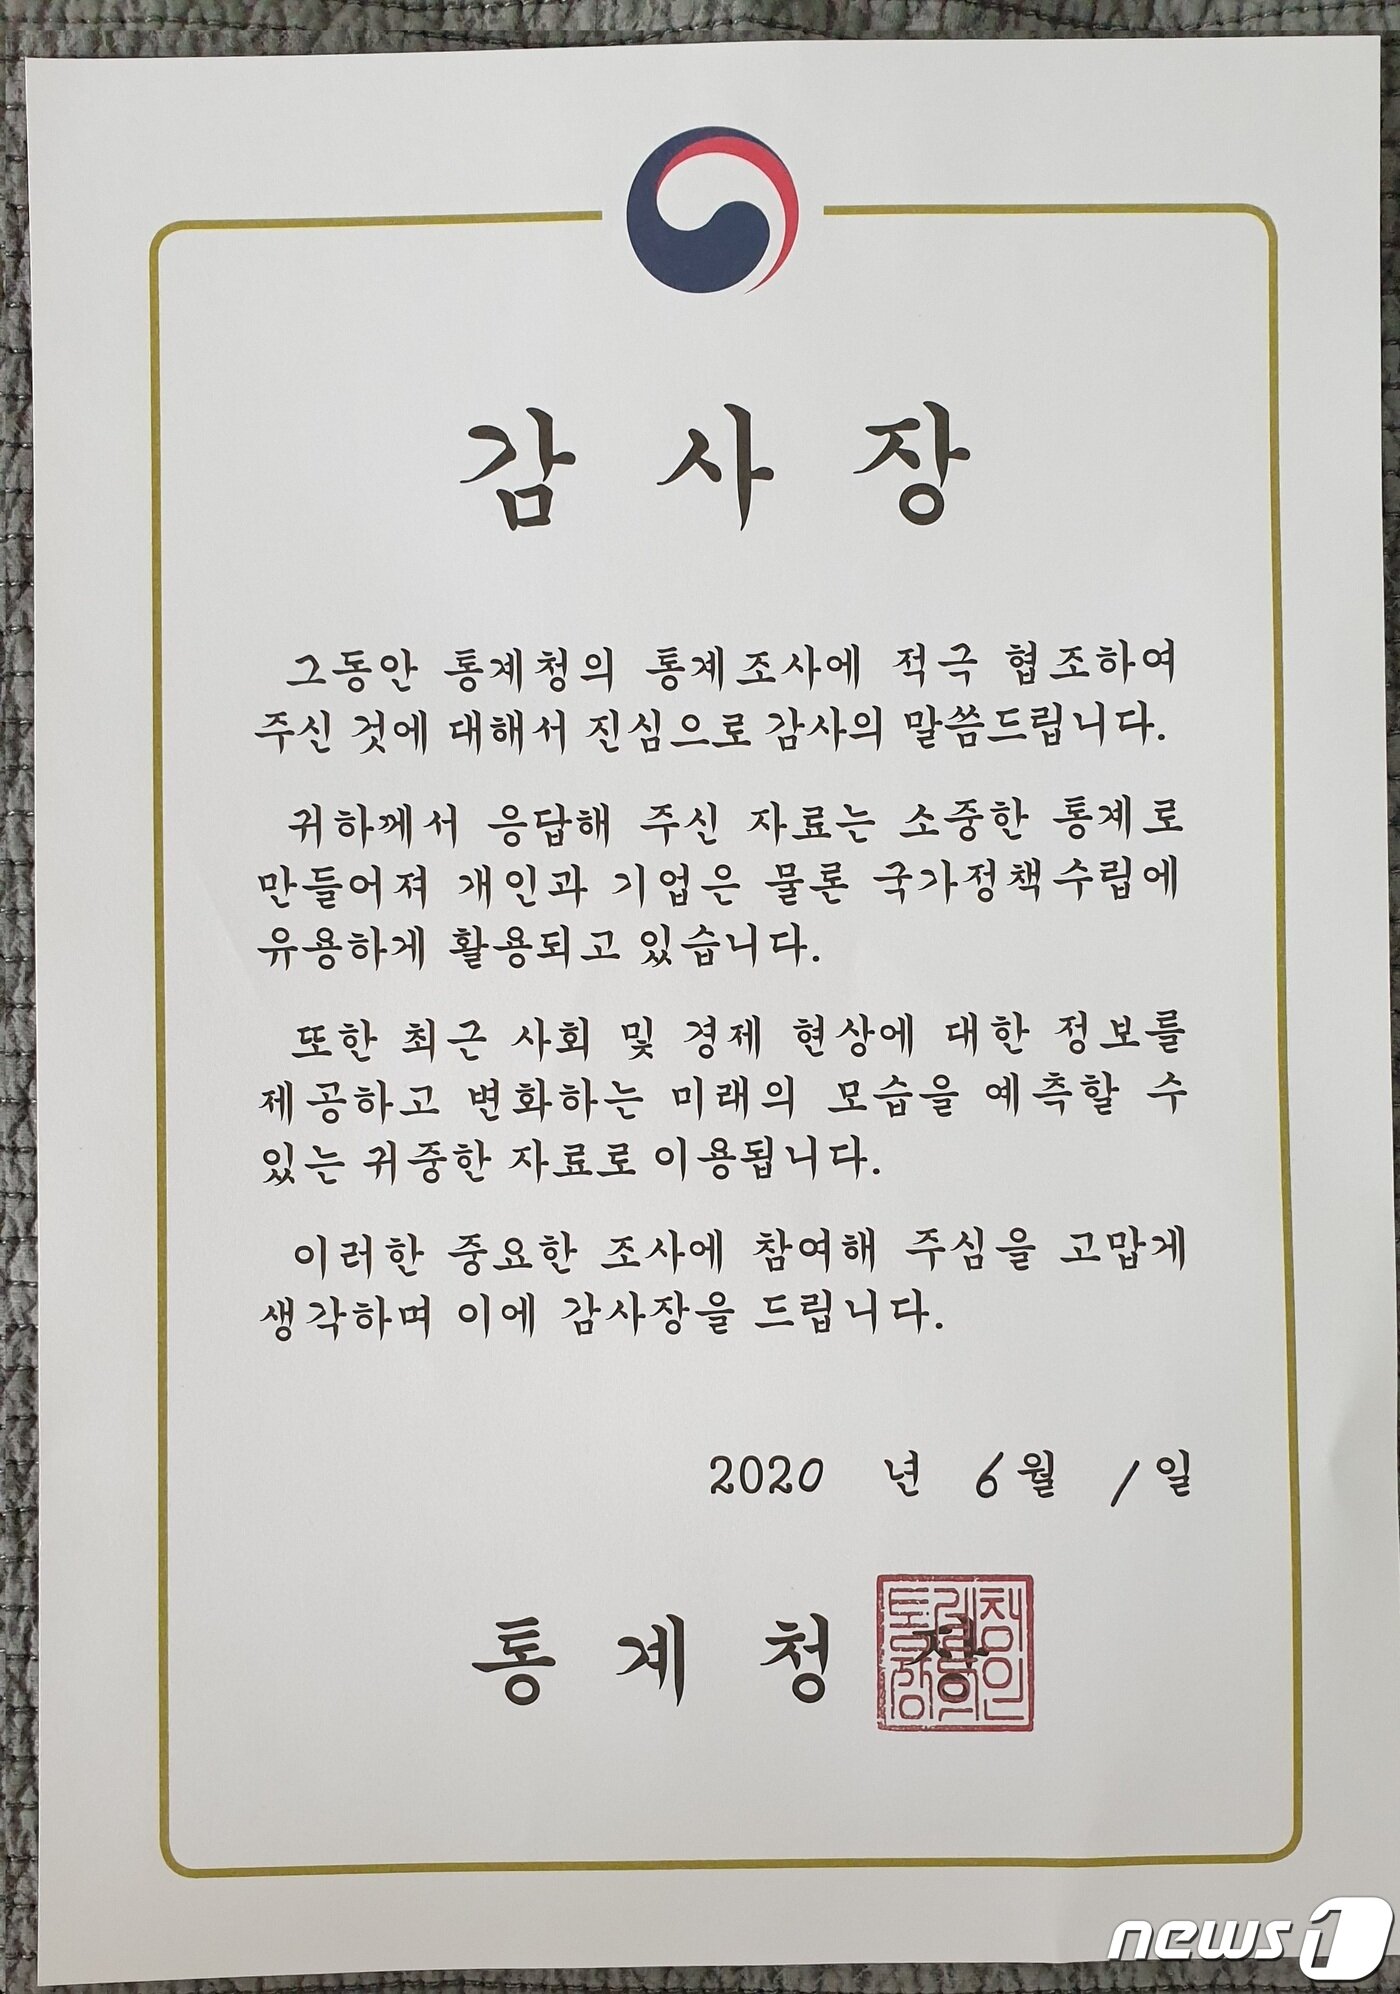 감 사 장
그동안 통계청의 통계조사에 적극 협조하여
주신 것에 대해서 진심으로 감사의 말씀드립니다.
귀하께서 응답해 주신 자료는 소중한 통계로
만들어져 개인과 기업은 물론 국가정책수립에
유용하게 활용되고 있습니다.
또한 최근 사회 및 경제 현상에 대한 정보를
제공하고 변화하는 미래의 모습을 예측할 수
있는 귀중한 자료로 이용됩니다.
이러한 중요한 조사에 참여해 주심을 고맙게
생각하며 이에 감사장을 드립니다.
2020 년 6월 1일
통 계 청 장
news1